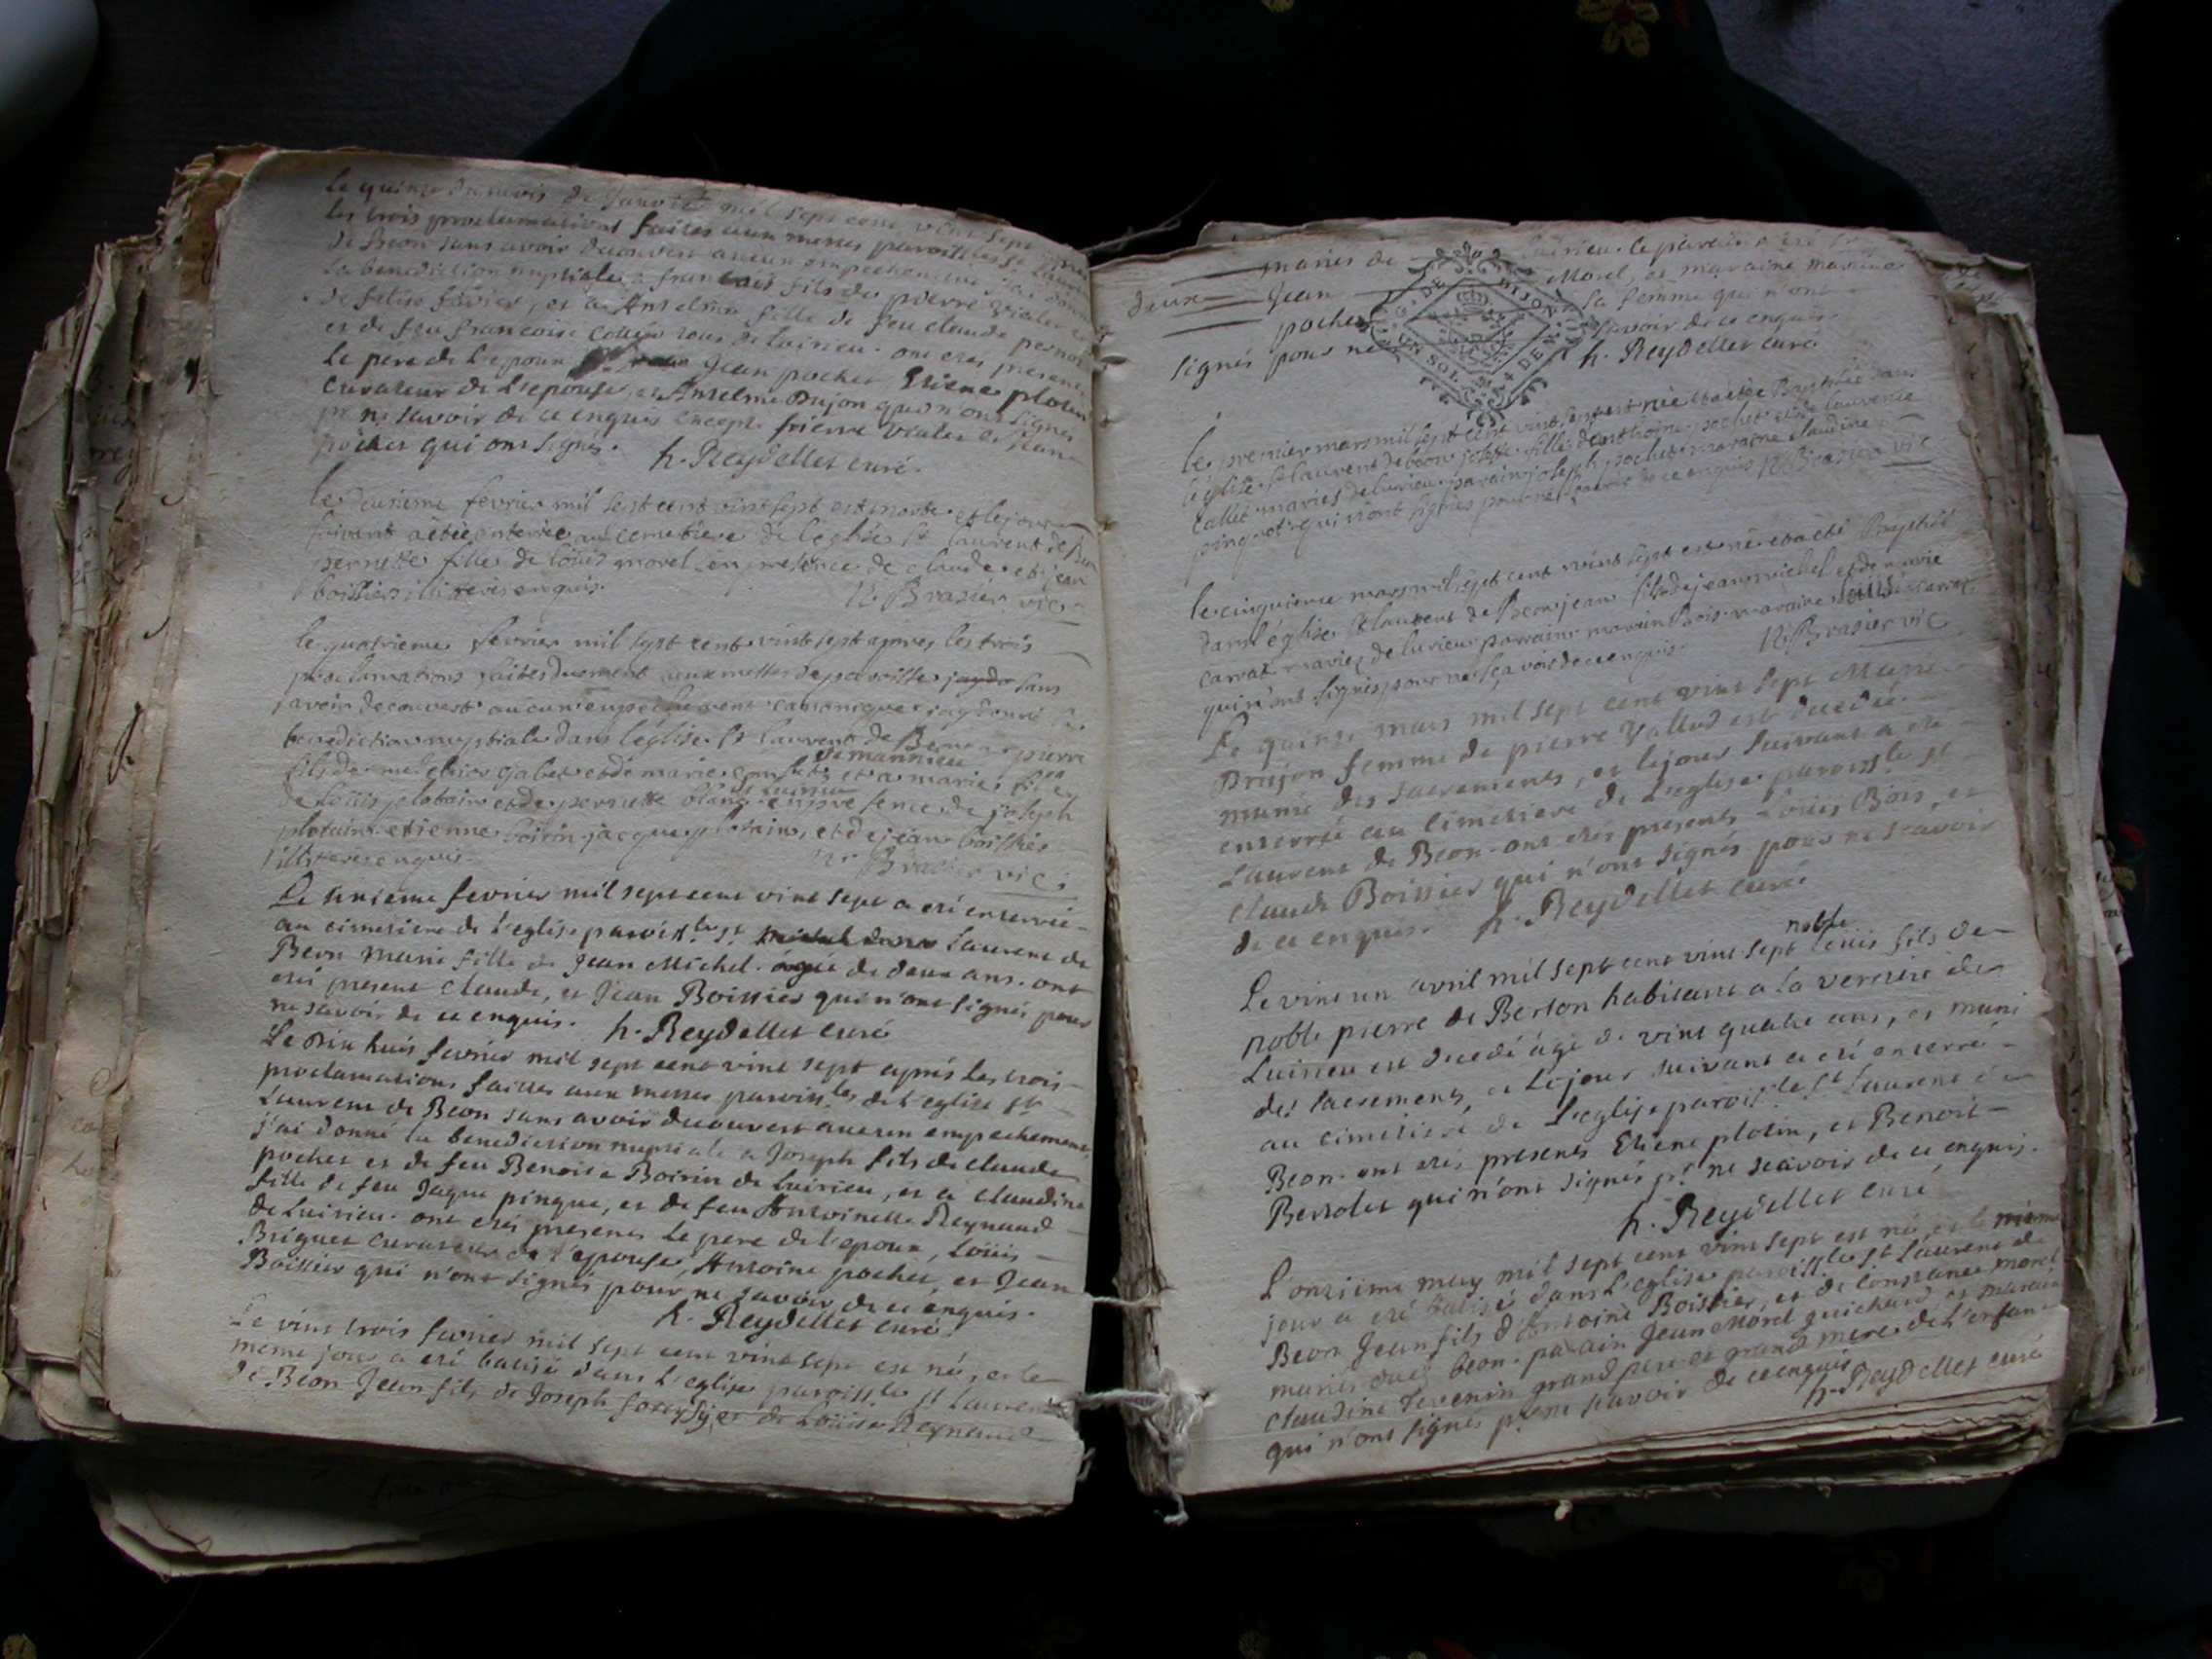 le quinze du mois de Janvier mil sept cent vint sept
les trois proclamations faites aux messes paroissles St Laurent
de Beon sans avoir decouvert aucun empechement j'ai donné
la benediction nuptiale a francois fils de pierre
et a Anselme fille de feu claude pernot
et de feu francoise tous de luirieu. ont etés presents
le pere de l'epoux Jean pochet Etiene plotin
curateur de l'epouse, et Anselme Dujon qui n'ont signés
pr ne savoir de ce enquis excepté pierre et Jean
pochet qui ont signés. h. Reydellet curé.
le deuxieme fevrier mil sept cent vint sept est morte et le jour
suivant a étée enterrée au cemetiere de l'eglise St laurent de Beon
pernette fille de loüis morel en presence de claude et jean
boissier illiteres enquis. N. Brasier vic
le quatrieme fevrier mil sept cent vint sept apres les trois
proclamations faites duement aux messes de paroisse sans
avoir decouvert aucun empechement canonique j'ay donné la
benediction nuptiale dans l'église St laurent de Beon a pierre
de mannieu
fils de et de marie et a marie fille
de luirieu
de loüis plotain et de pernette en presence de joseph
plotain etienne boirin jacque plotain, et de jean boissier
illiteres enquis. Nr Brasier vic
Le unieme fevrier mil sept cent vint sept a eté enterrée
au cimetiere de l'eglise paroissle St Laurent de
Beon Marie fille de Jean Michel. agée de deux ans. ont
etés present claude, et Jean Boissier qui n'ont signés pour
ne savoir de ce enquis. h. Reydellet curé
Le Dix huit fevrier mil sept cent vint sept aprés les trois
proclamations faites aux messes paroissles de l'eglise St
Laurent de Beon sans avoir decouvert aucun empechement,
j'ai donné la benediction nuptiale a Joseph fils de claude
pochet et de feu Benoite Boirin de luirieu, et a claudine
fille de feu Jaque pingue, et de feu Antoinette Reynaud
de Luirieu. ont etés presents le pere de l'epoux, loüis
Briguet curateur de l'epouse, Antoine pochet, et Jean
Boissier qui n'ont signés pour ne savoir de ce enquis.
h. Reydellet curé
Le vint trois fevrier mil sept cent vint sept est né, et le
meme jour a eté batisé dans l'eglise paroissle St Laurent
de Beon Jean fils de Joseph et de Loüise Reynaud
mariés de luirieu. le parain a eté
deux Jean Morel, et maraine
pochet sa femme qui n'ont
signés pour ne savoir de ce enquis
h. Reydellet curé
DE DIJON
UN SOL 4 DEN
le premier mars mil sept cent vint sept est née et a étée Baptisée dans
l'église St laurent de beon fille d'anthoine pochet et de laurence
callet mariés de lurieu parain joseph pochet maraine claudine
pinguet qui n'ont signés pour ne sçavoir de ce enquis N. Brasier vic
le cinquieme mars mil sept cent vint sept est né et a eté Baptisé
dans l'église St laurent de Beon jean fils de jean michel et de marie
carrat mariés de lurieu parrain Bois maraine carrat
qui n'ont signés pour ne sçavoir de ce enquis. N. Brasier vic
Le quinze mars mil sept cent vint sept
Drujon femme de pierre Vallod est decedée.
munie des sacrements, et le jour suivant a eté
enterrée au cimetiere de l'eglise paroissle St
Laurent de Beon. ont etés presents loüis Bois, et
claude Boissier qui n'ont signés pour ne scavoir
de ce enquis. h. Reydellet curé.
noble
Le vint un avril mil sept cent vint sept loüis fils de
noble pierre de Berton habitant a la verriere de
Luirieu est decedé agé de vint quatre ans, et muni
des sacrements, et le jour suivant a eté enterré
au cimetiere de l'eglise paroissle St Laurent de
Beon. ont etés presents Etiene plotin, et Benoit
Berrolet qui n'ont signés pr ne scavoir de ce enquis.
h. Reydellet curé
L'onzieme may mil sept cent vint sept est né, et le meme
jour a eté batisé dans l'eglise paroissle St Laurent de
Beon Jean fils d'Antoine Boissier, et de constance morel
mariés dud beon. parain Jean Morel guichard et maraine
claudine Tevenin grand pere et grand mere de l'enfant
qui n'ont signés pr ne scavoir de ce enquis
h. Reydellet curé